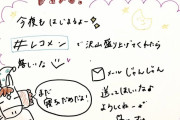 今夜も はじまるよー
#レコメン で沢山盛り上げてくれたら
嬉しいな
メール じゃんじゃん
送ってほしいなぁ
よろしくねーっ
まだ
寝ちゃだめだよ!